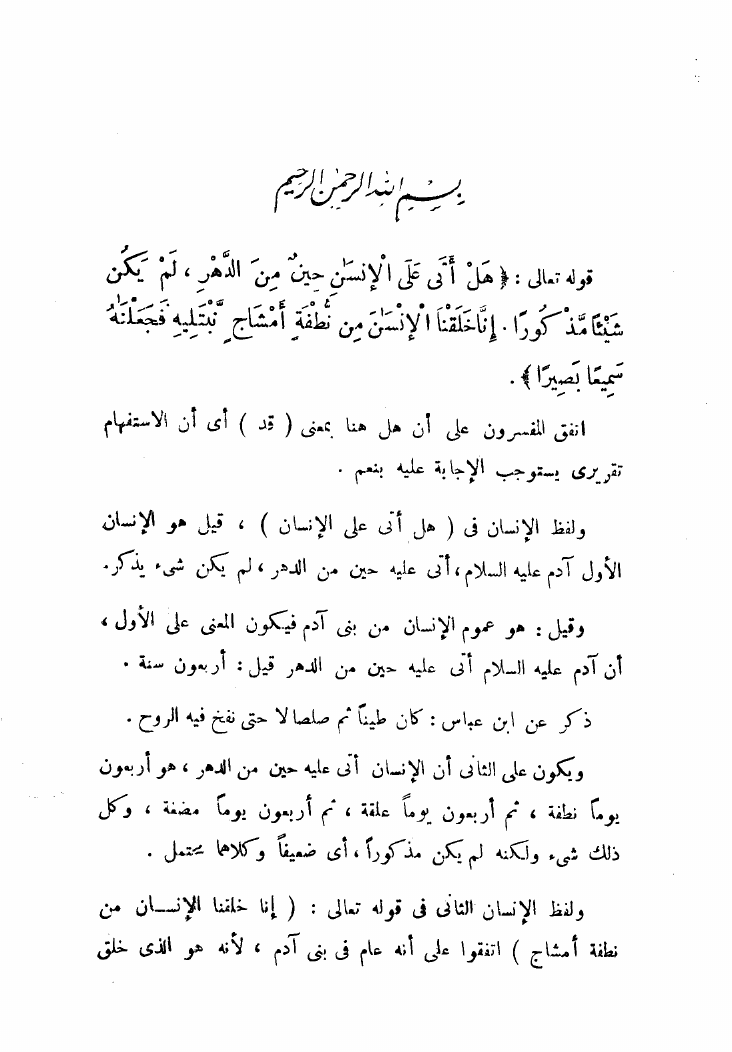 بسم الله الرحمن الرحيم
قوله تعالى : ﴿ هَلْ أَتَىٰ عَلَى الْإِنسَٰنِ حِينٌ مِّنَ الدَّهْرِ ، لَمْ يَكُن
شَيْئًا مَّذْكُورًا . إِنَّا خَلَقْنَا الْإِنسَٰنَ مِن نُّطْفَةٍ أَمْشَاجٍ نَّبْتَلِيهِ فَجَعَلْنَٰهُ
سَمِيعًا بَصِيرًا ﴾ .
اتفق المفسرون على أن هل هنا بمعنى ( قد ) أى أن الاستفهام
تقريرى يستوجب الإجابة عليه بنعم .
ولفظ الإنسان فى ( هل أتى على الإنسان ) ، قيل هو الإنسان
الأول آدم عليه السلام ، أتى عليه حين من الدهر ، لم يكن شىء يذكر.
وقيل : هو عموم الإنسان من بنى آدم فيكون المعنى على الأول ،
أن آدم عليه السلام أتى عليه حين من الدهر قيل : أربعون سنة .
ذكر عن ابن عباس : كان طيناً ثم صلصالا حتى نفخ فيه الروح .
ويكون على الثانى أن الإنسان أتى عليه حين من الدهر ، هو أربعون
يوماً نطفة ، ثم أربعون يوماً علقة ، ثم أربعون يوماً مضغة ، وكل
ذلك شىء ولكنه لم يكن مذكوراً ، أى ضعيفاً وكلاهما محتمل .
ولفظ الإنسان الثانى فى قوله تعالى : ( إنا خلقنا الإنسان من
نطفة أمشاج ) اتفقوا على أنه عام فى بنى آدم ، لأنه هو الذى خلق